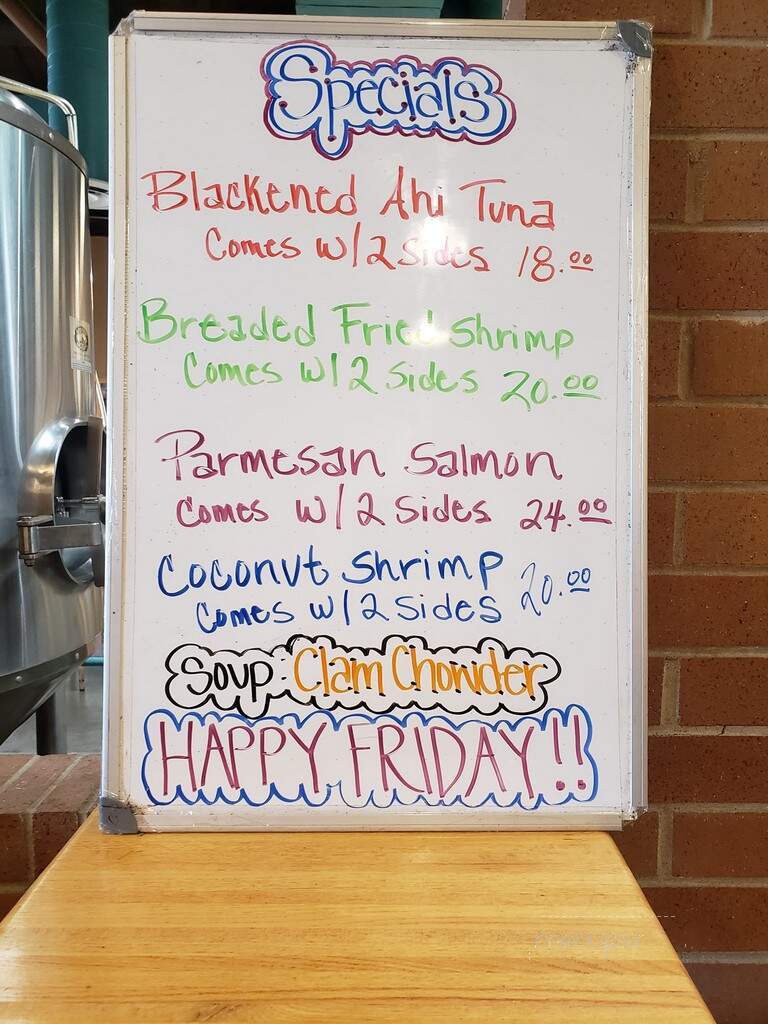 Specials
Blackened Ahi Tuna
Comes w/2 sides 18.00
Breaded Fried shrimp
Comes w/2 sides 20.00
Parmesan Salmon
Comes w/2 sides 24.00
Coconut shrimp 20.00
Comes w/2 sides
Soup: Clam Chowder
HAPPY FRIDAY!!